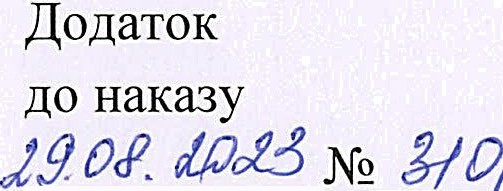 Додаток
до наказу
29.08.2023 № 310